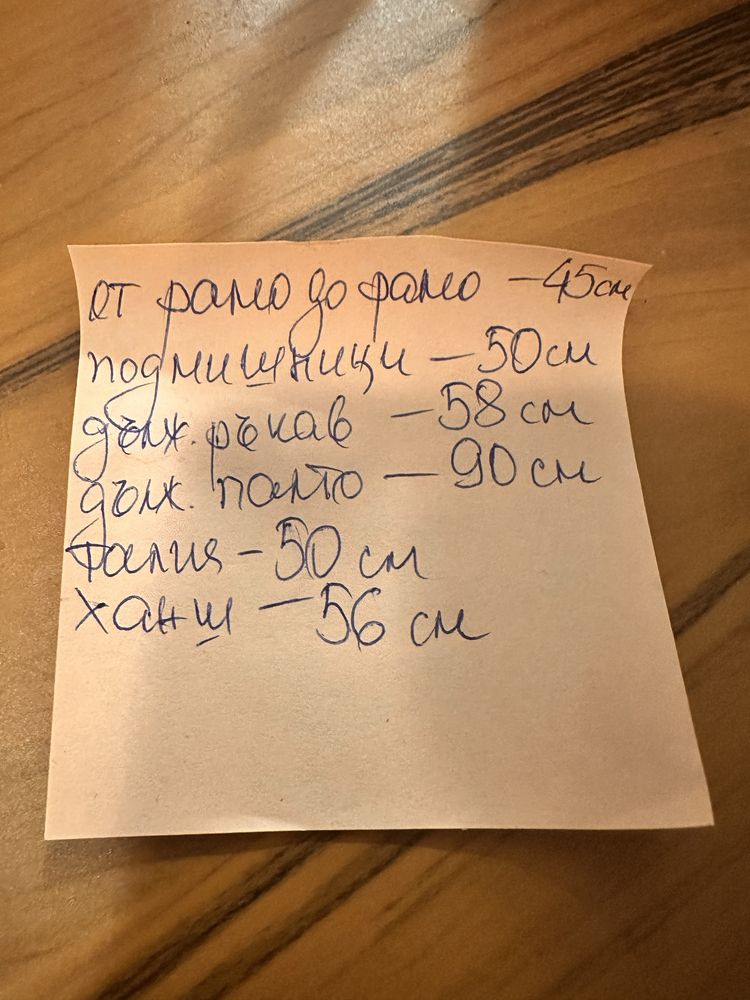 от рамо до рамо – 45 см
подмишници – 50 см
дълж. ръкав – 58 см
дълж. палто – 90 см
талия – 50 см
ханш – 56 см